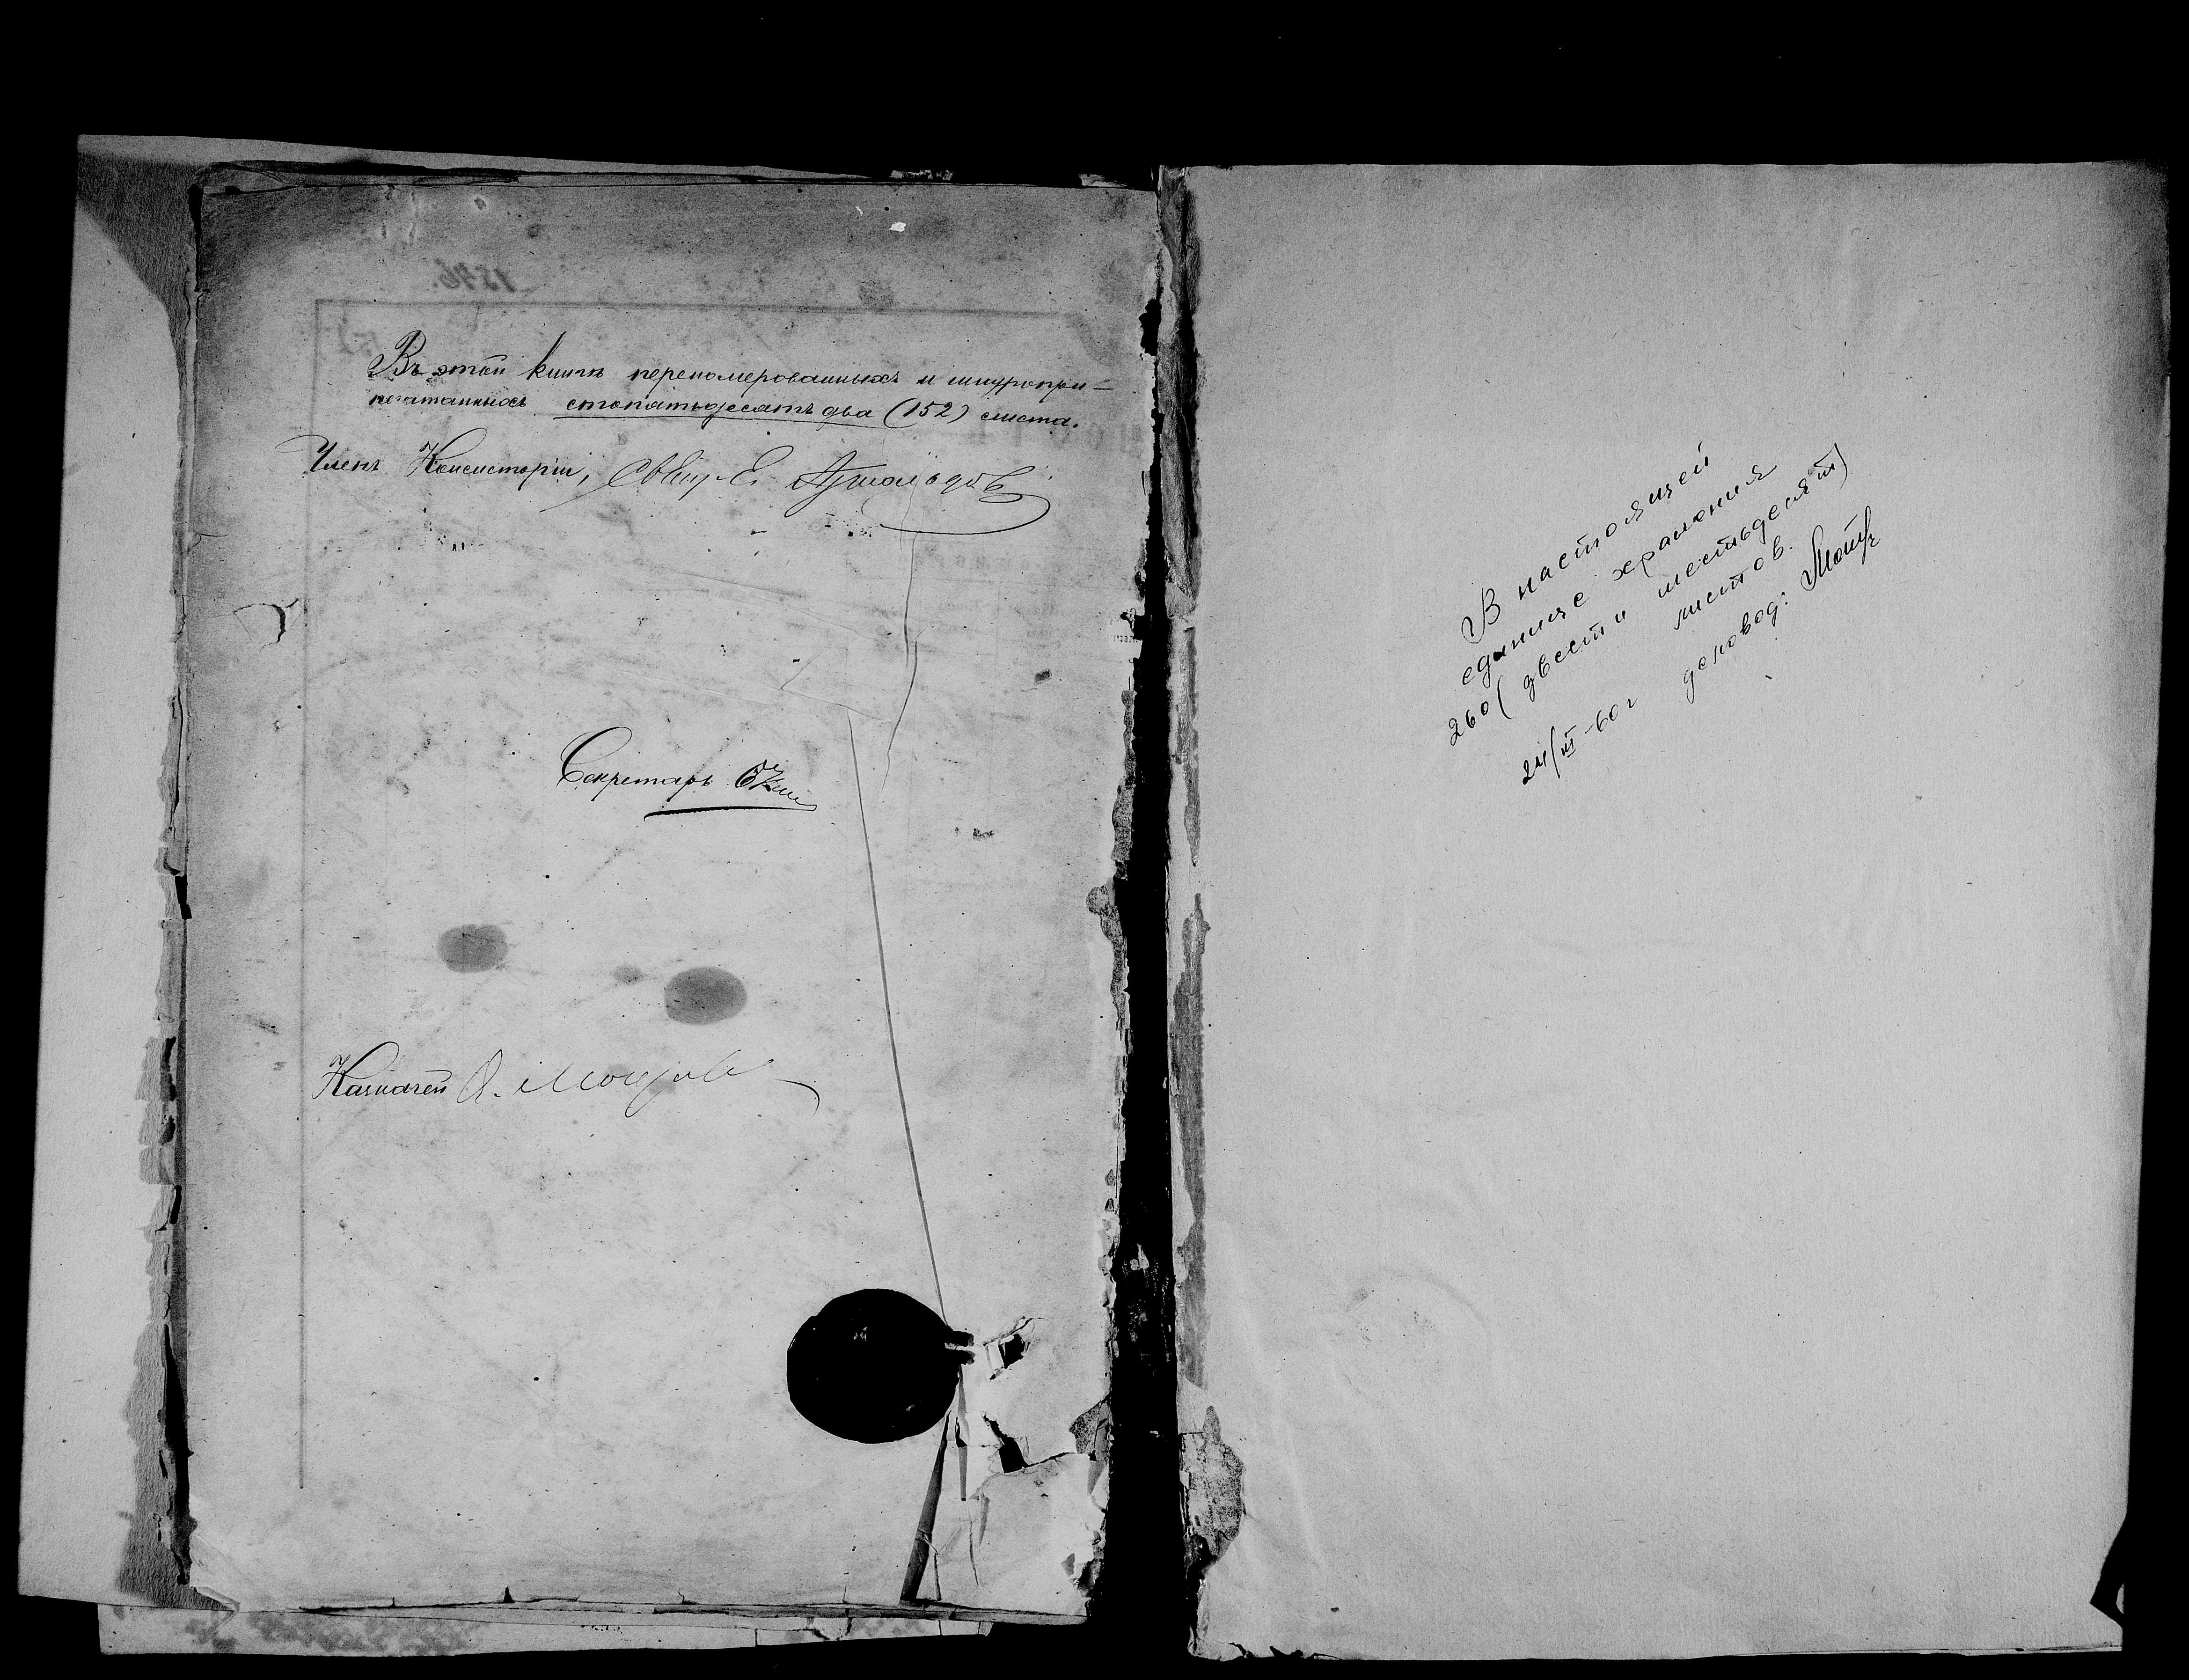 Въ этой книгѣ перенумерованныхъ и шнуропри-
печатанныхъ стопятьдесятъ два (152) листа.
Членъ Консисторіи, Свящ. Е.
Секретарь
Казначей
В настоящей
единице хранения
260 (двести шестьдесят)
листов.
24/III-60 г деловод: